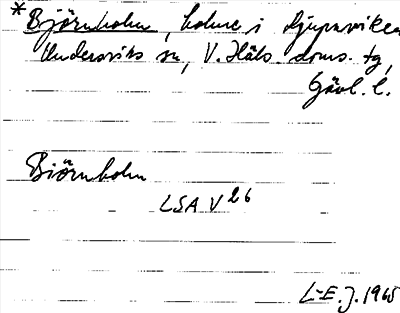 *Björnholm, holme i Djupaviken
Undersviks sn, V. Häls. doms. tg,
Gävl. l.
Biörnholm
LSA V 26
L-E. J. 1965